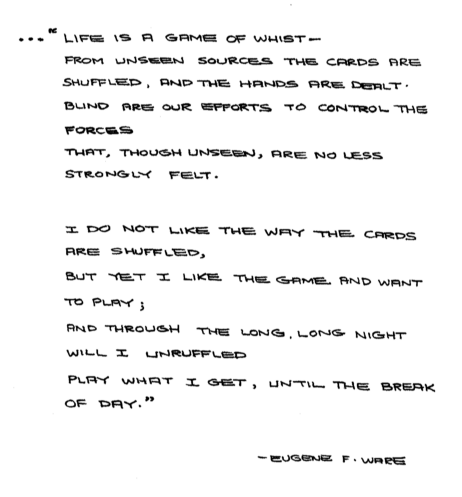 ..."LIFE IS A GAME OF WHIST—
FROM UNSEEN SOURCES THE CARDS ARE
SHUFFLED, AND THE HANDS ARE DEALT.
BLIND ARE OUR EFFORTS TO CONTROL THE
FORCES
THAT, THOUGH UNSEEN, ARE NO LESS
STRONGLY FELT.
I DO NOT LIKE THE WAY THE CARDS
ARE SHUFFLED,
BUT YET I LIKE THE GAME AND WANT
TO PLAY;
AND THROUGH THE LONG, LONG NIGHT
WILL I UNRUFFLED
PLAY WHAT I GET, UNTIL THE BREAK
OF DAY."
—EUGENE F. WARE